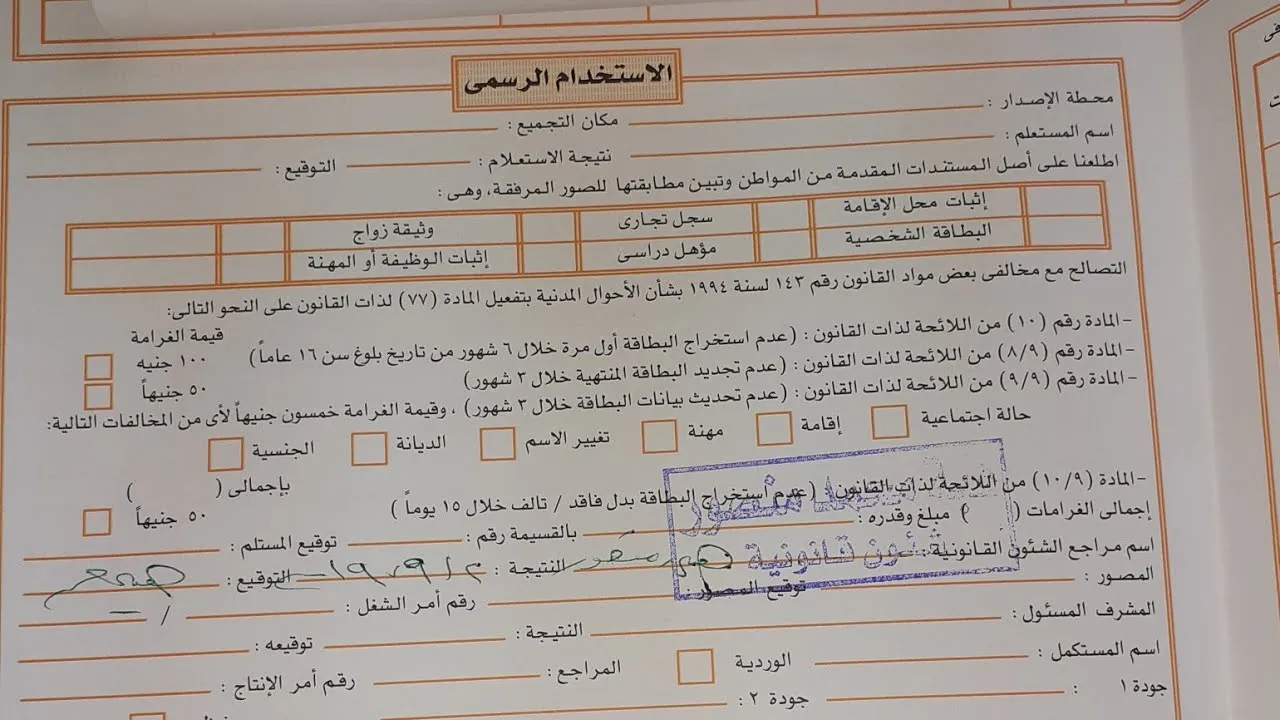 الاستخدام الرسمى
محطة الإصدار : مكان التجميع :
اسم المستعلم : نتيجة الاستعلام : التوقيع :
اطلعنا على أصل المستندات المقدمة من المواطن وتبين مطابقتها للصور المرفقة، وهى :
إثبات محل الإقامة سجل تجارى وثيقة زواج
البطاقة الشخصية مؤهل دراسى إثبات الوظيفة أو المهنة
التصالح مع مخالفى بعض مواد القانون رقم ١٤٣ لسنة ١٩٩٤ بشأن الأحوال المدنية بتفعيل المادة (٧٧) لذات القانون على النحو التالى:
قيمة الغرامة
-المادة رقم (١٠) من اللائحة لذات القانون : (عدم استخراج البطاقة أول مرة خلال ٦ شهور من تاريخ بلوغ سن ١٦ عاماً) ١٠٠ جنيه
-المادة رقم (٨/٩) من اللائحة لذات القانون : (عدم تجديد البطاقة المنتهية خلال ٣ شهور) ٥٠ جنيهاً
-المادة رقم (٩/٩) من اللائحة لذات القانون : (عدم تحديث بيانات البطاقة خلال ٣ شهور) ، وقيمة الغرامة خمسون جنيهاً لأى من المخالفات التالية:
حالة اجتماعية إقامة مهنة تغيير الاسم الديانة الجنسية
بإجمالى ( )
-المادة (١٠/٩) من اللائحة لذات القانون : (عدم استخراج البطاقة بدل فاقد / تالف خلال ١٥ يوماً) ٥٠ جنيهاً
إجمالى الغرامات ( ) مبلغ وقدره : بالقسيمة رقم : توقيع المستلم :
اسم مراجع الشئون القانونية : النتيجة : التوقيع :
منصور
شئون قانونية
المصور : توقيع المصور : رقم أمر الشغل :
المشرف المسئول : النتيجة : توقيعه :
اسم المستكمل : الوردية المراجع : رقم أمر الإنتاج :
جودة ١ : جودة ٢ :